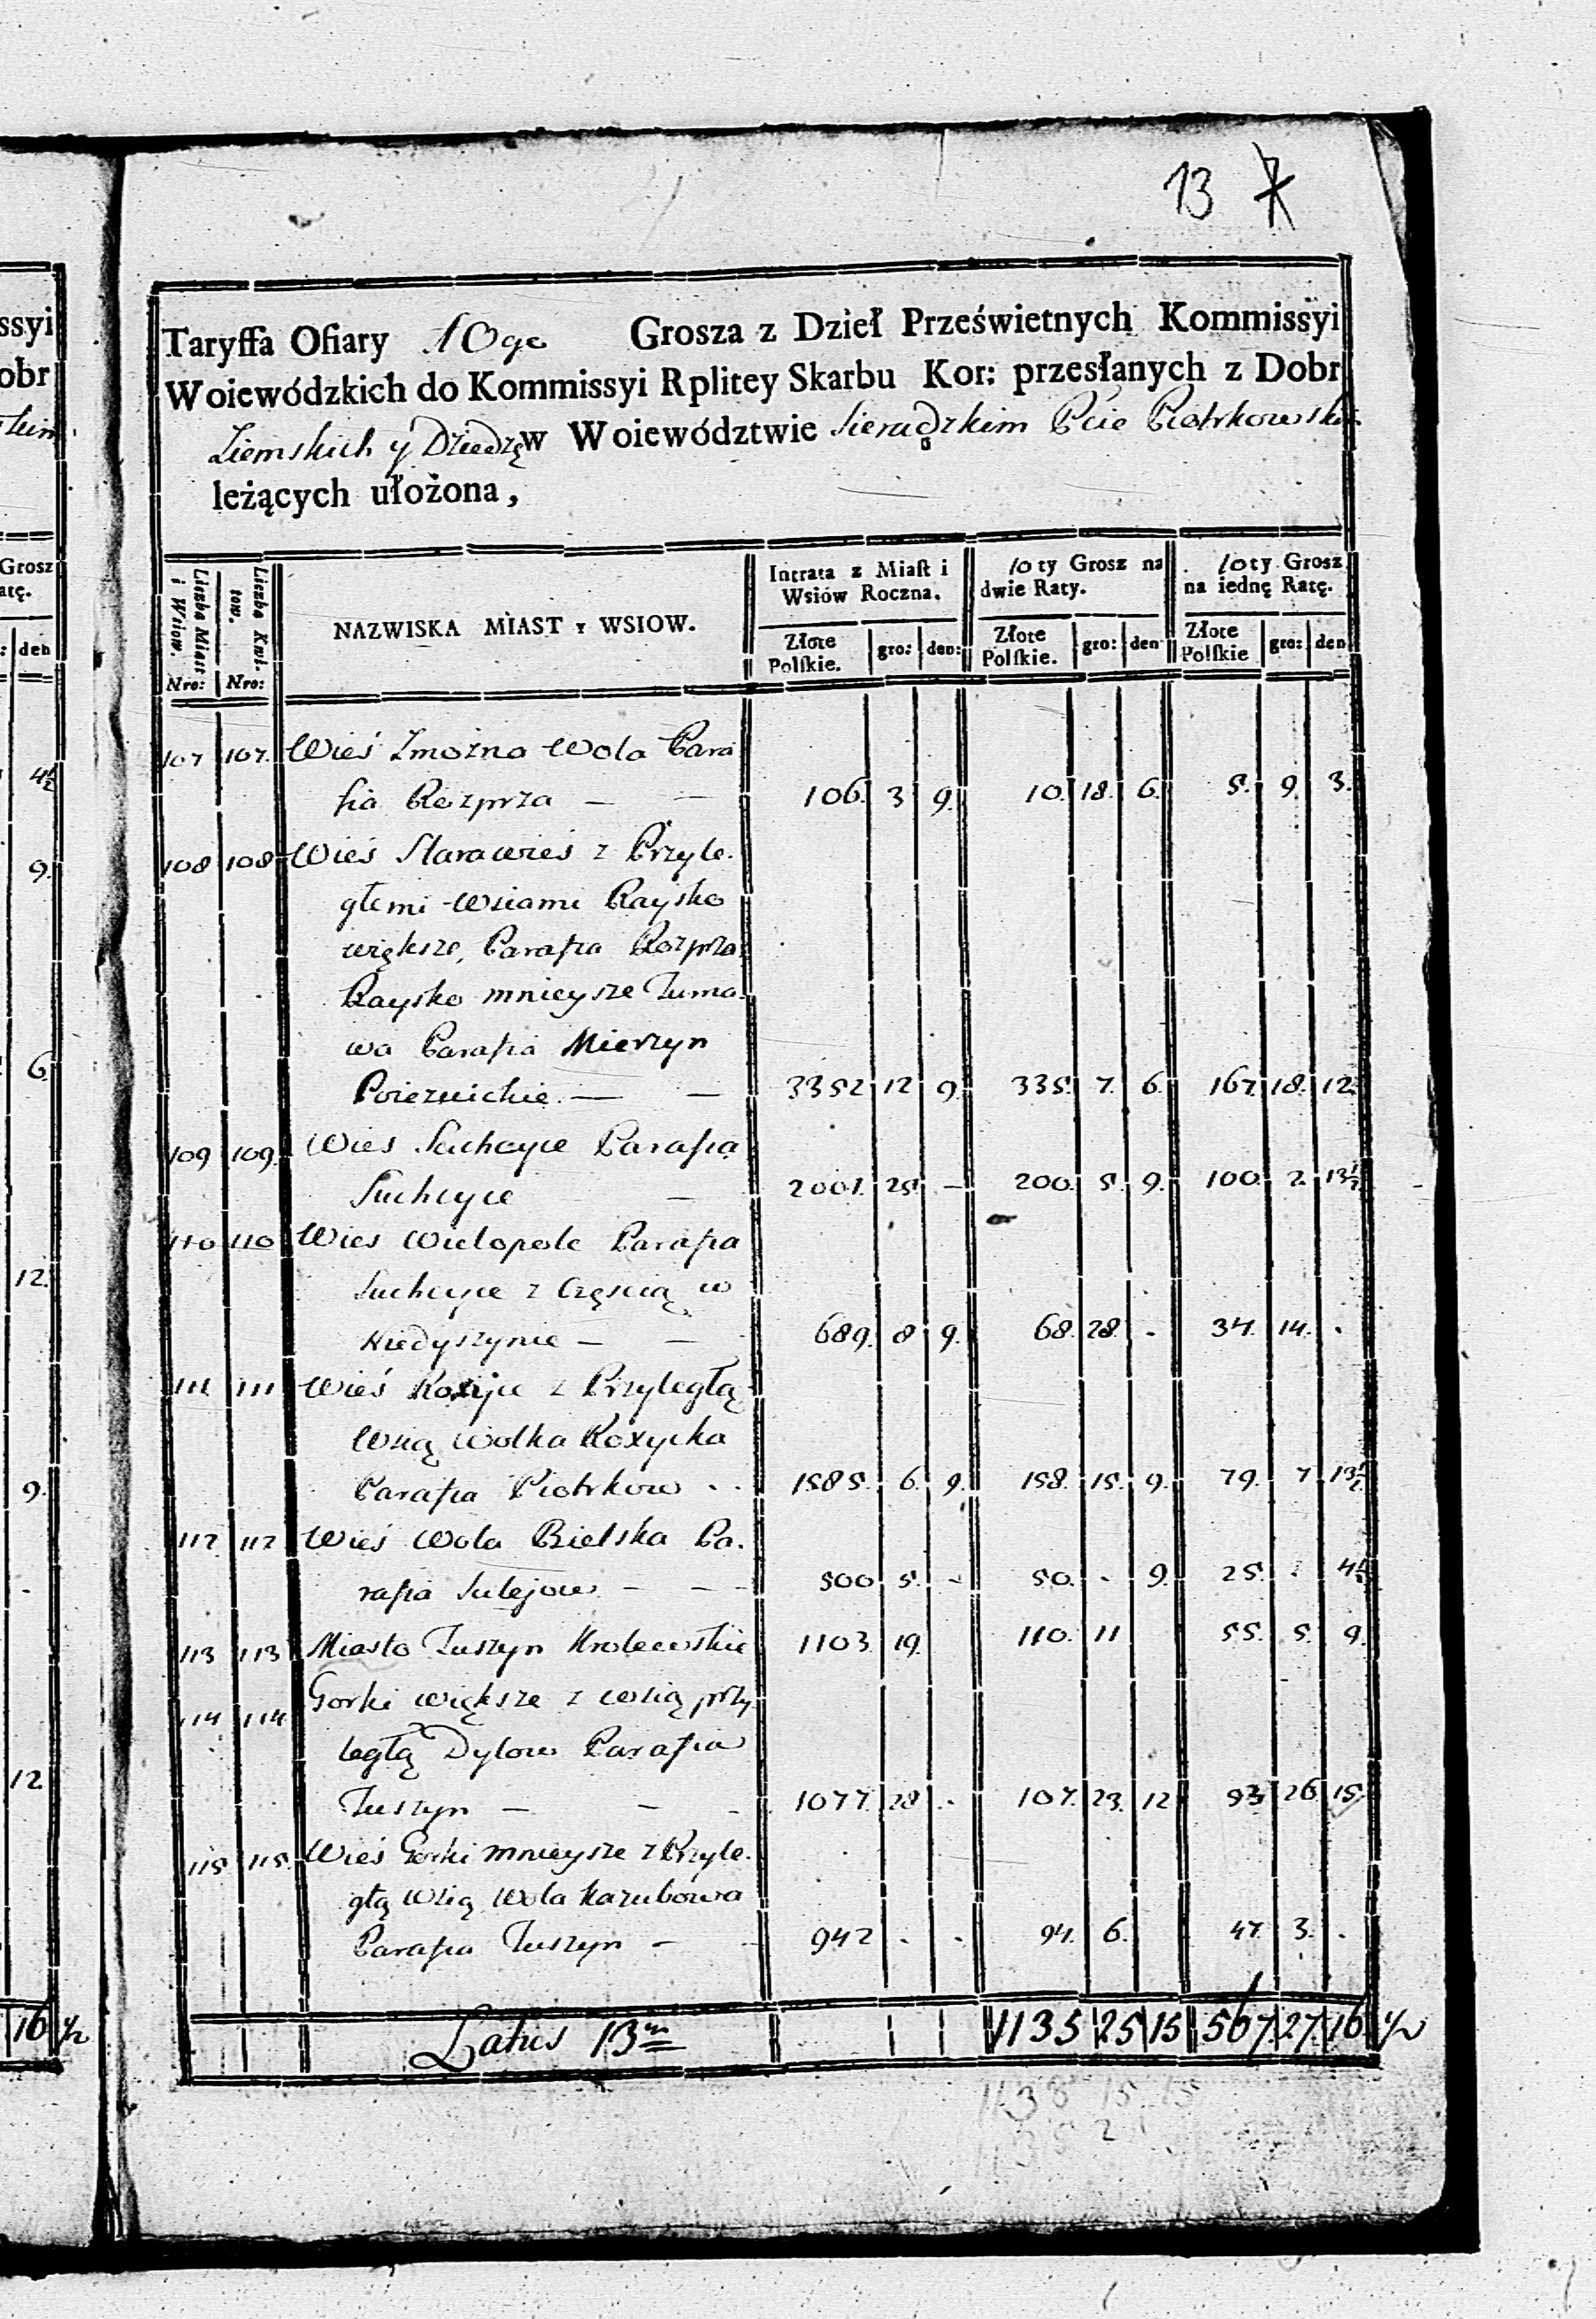 13
Taryffa Ofiary 10go Grosza z Dzieł Prześwietnych Kommissyi
Woiewódzkich do Kommissyi Rplitey Skarbu Kor: przesłanych z Dobr
Ziemskich y Dziedz w Woiewództwie Sieradzkim Pcie Piotrkowskim
leżących ułożona,
Liczba Miast i Wsiow. Nro: Liczba Kwitow. Nro: NAZWISKA MIAST y WSIOW. Intrata z Miast i Wsiów Roczna. Złote Polskie. gro: den: 10ty Grosz na dwie Raty. Złote Polskie. gro: den 10ty Grosz na iednę Ratę. Złote Polskie gro: den
107 107. Wieś Zmożna Wola Para
fia Rozprza — — 106. 3 9. 10. 18. 6. 5. 9. 3.
108 108 Wieś Starawieś z Przyle.
głemi Wsiami Raysko
większe, Parafia Rozprza
Raysko mnieysze Tuma.
wa Parafia Mierzyn
— — 3352 12 9. 335. 7. 6. 167. 18. 12.
109 109. Wieś Suchcyce Parafia
Suchcyce — 2001. 25. — 200. 5. 9. 100. 2. 13½
110 110 Wieś Wielopole Parafia
Suchcyce z Częścią w
Niedyszynie — — 689. 8 9. 68. 28. - 34. 14. .
111 111 Wieś Rożyce z Przyległą
Wsią Wolka Rożycka
Parafia Piotrkow . . 1585. 6. 9. 158. 15. 9. 79. 7. 13½
112. 112 Wieś Wola Bielska Pa.
rafia Sulejow — — - 500 5. - 50. - 9. 25. - 4½
113 113 Miasto Tuszyn Krolewskie 1103. 19. 110. 11 55. 5. 9.
114 114 Gorki większe z wsią przy
ległą Dylow Parafia
Tuszyn — — - 1077. 28 .- 107. 23. 12 53 26. 15.
115 115. Wieś Gorki mnieysze z Przyle.
głą Wsią Wola Kazubowa
Parafia Tuszyn — 942 . . 94. 6. 47. 3. .
Latus 13m 1135 25 15 567. 27. 16 ½
ssyi
obr
skim.
Grosz
atę.
: den
4½
9.
6.
12.
9.
-
12
16 ½